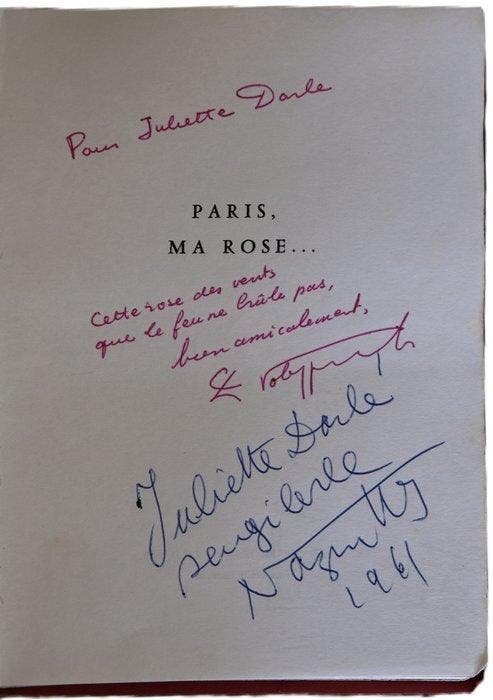 Pour Juliette Darle
PARIS,
MA ROSE...
Cette rose des vents
que le feu ne brûle pas,
bien amicalement,
Juliette Darle
sevgilerle
Nazım
1961